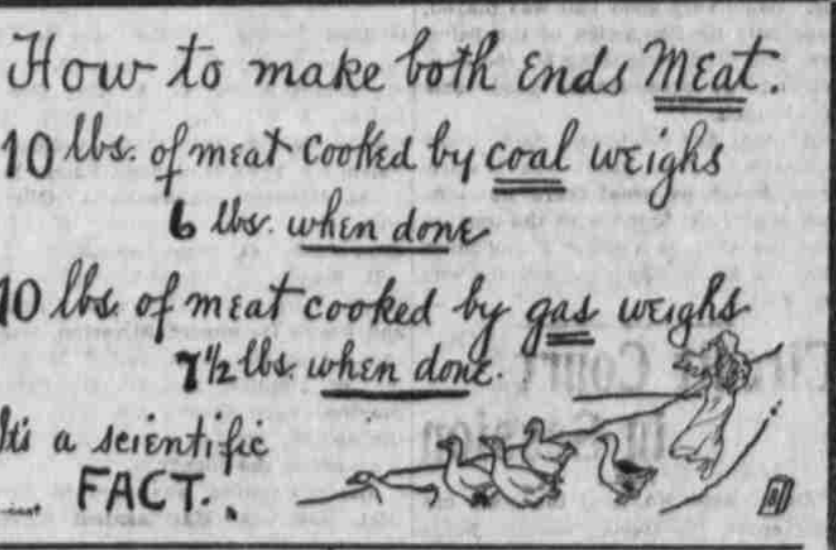 How to make both Ends MEat.
10 lbs. of meat cooked by coal weighs
6 lbs. when done
10 lbs. of meat cooked by gas weighs
7 1/2 lbs. when done.
It's a scientific
FACT.